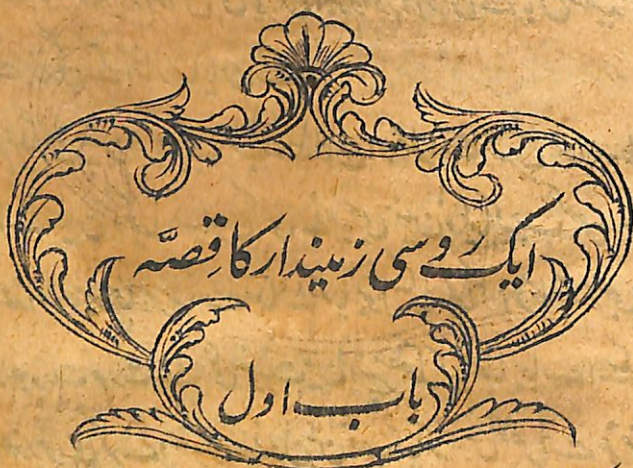 ایک روسی زمیندار کا قِصّہ
باب اول